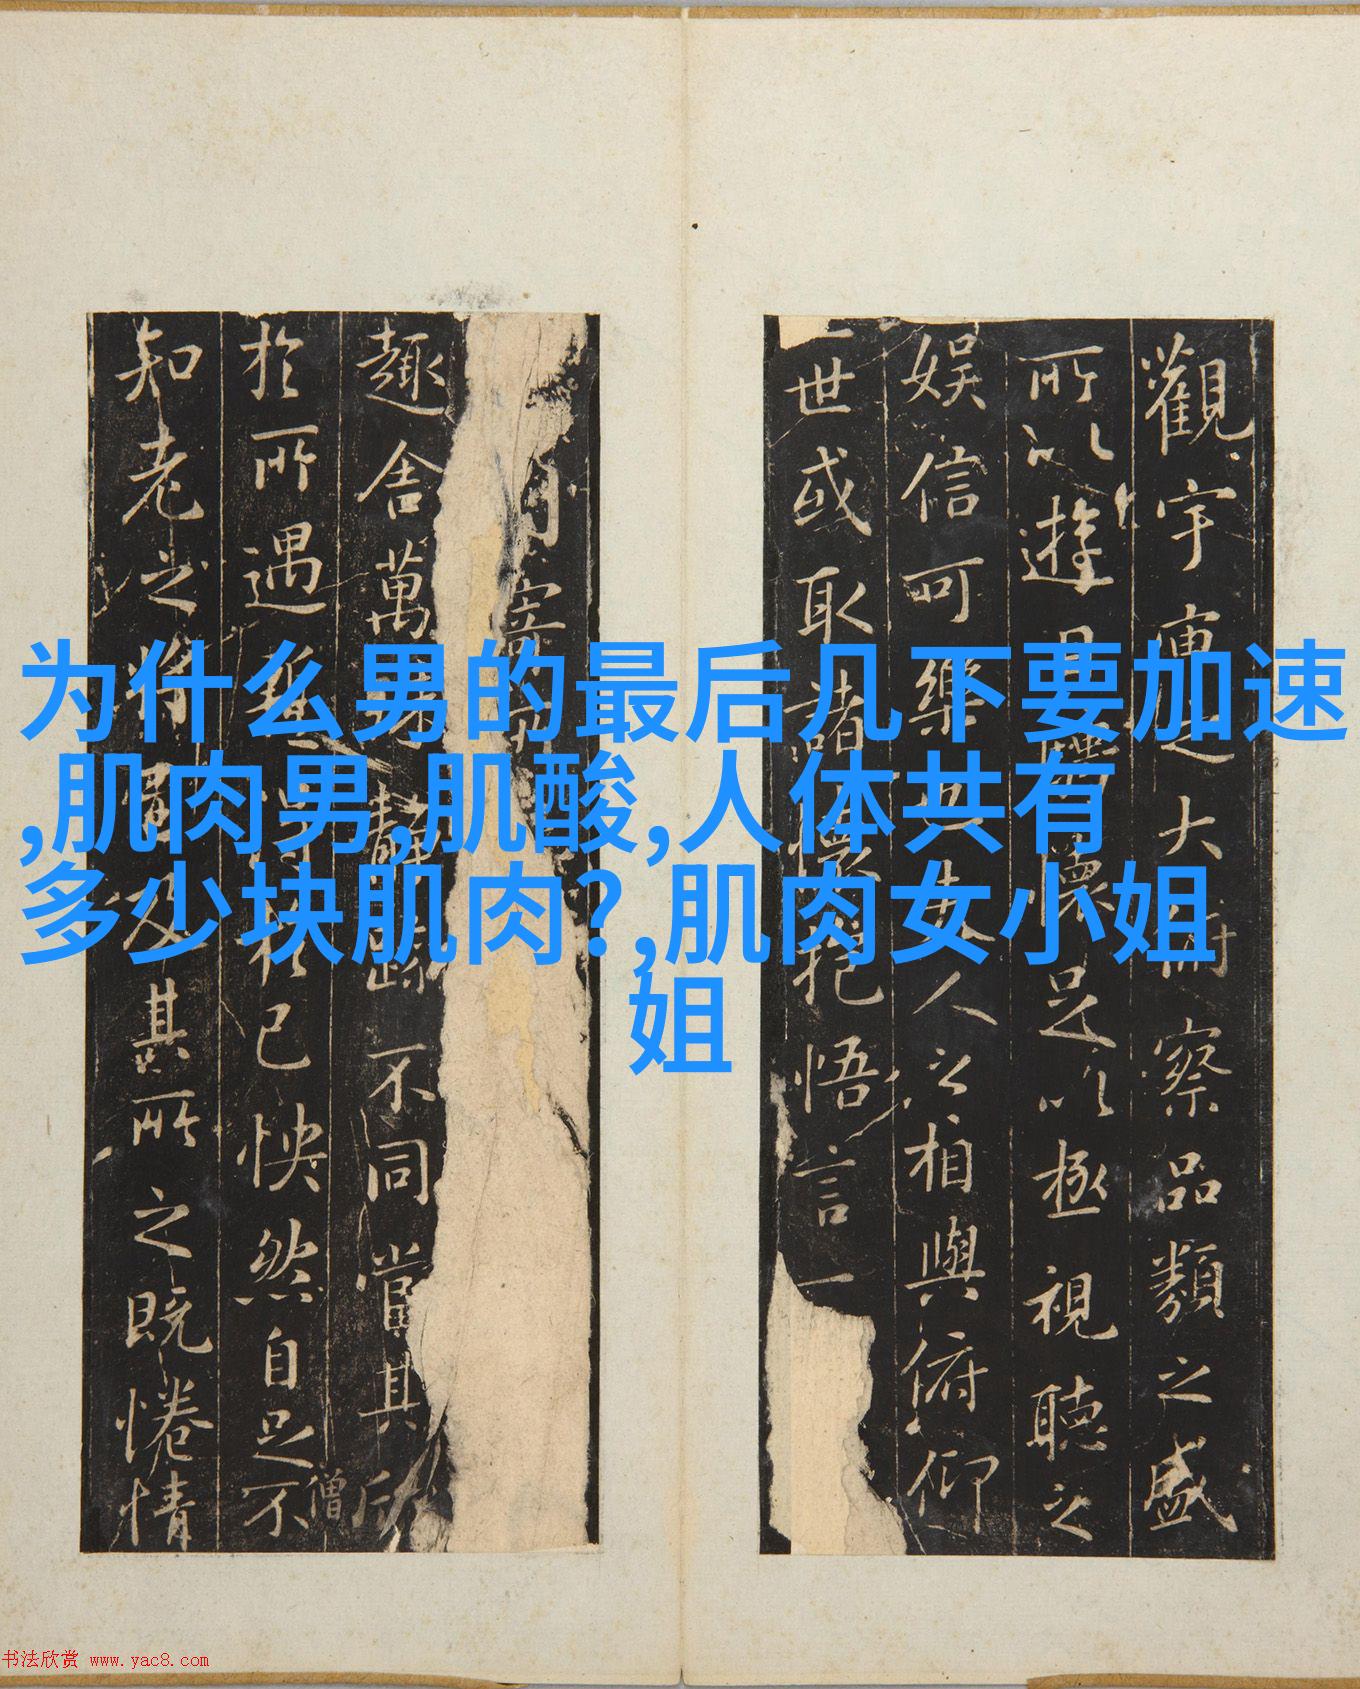 为什么男的最后几下要加速
,肌肉男,肌酸,人体共有
多少块肌肉?,肌肉女小姐
姐
觀宇之大俯察品類之盛
所以遊目騁懷足以極視聽之
娛信可樂也夫人之相與俯仰
一世或取諸懷抱悟言一
内寄所
趣舍萬殊靜躁不同當其欣
僧
於所遇暫得於己怏然自足不
知老之將及其所之既惓情
书法欣赏 www.yac8.com